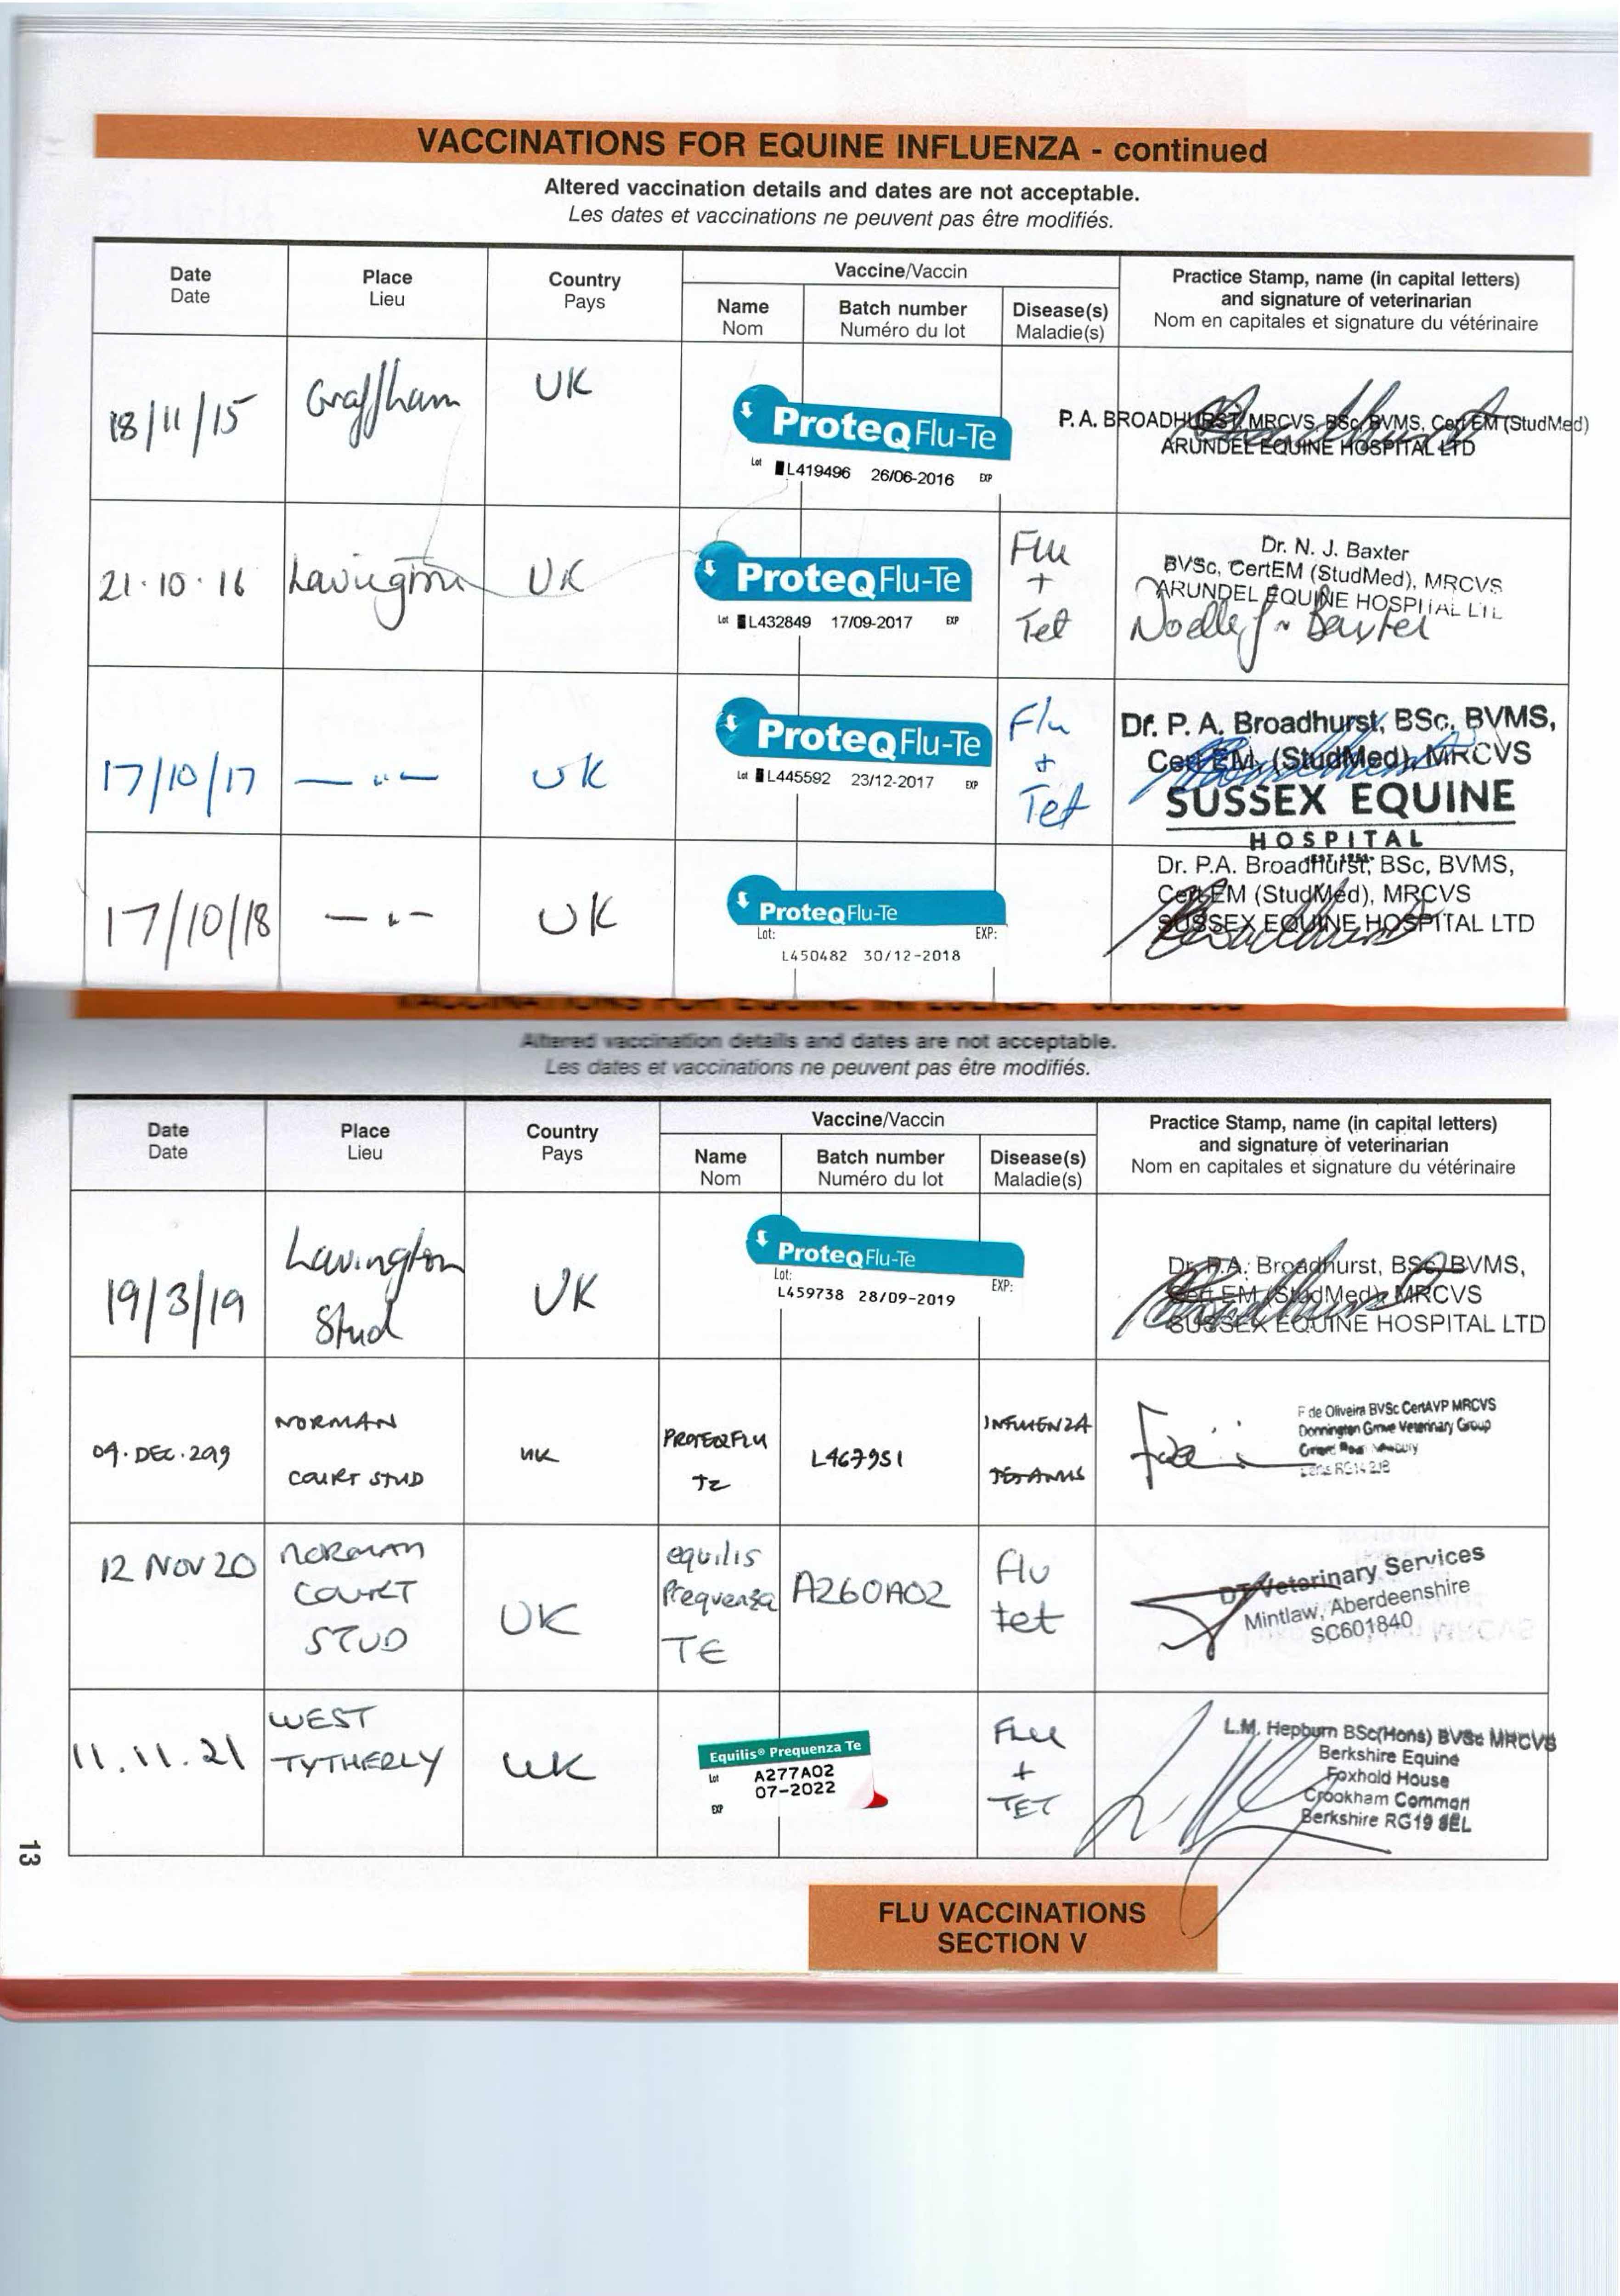 VACCINATIONS FOR EQUINE INFLUENZA - continued
Altered vaccination details and dates are not acceptable.
Les dates et vaccinations ne peuvent pas être modifiés.
Date
Date
Place
Lieu
Country
Pays
Vaccine/Vaccin
Name
Nom
Batch number
Numéro du lot
Disease(s)
Maladie(s)
Practice Stamp, name (in capital letters)
and signature of veterinarian
Nom en capitales et signature du vétérinaire
18/11/15
Graffham
UK
ProteqFlu-Te
Lot L419496 26/06-2016 EXP
P. A. BROADHURST, MRCVS, BSc, BVMS, Cert EM (StudMed)
ARUNDEL EQUINE HOSPITAL LTD
21.10.16
Lavington
UK
ProteqFlu-Te
Lot L432849 17/09-2017 EXP
Flu
+
Tet
Dr. N. J. Baxter
BVSc, CertEM (StudMed), MRCVS
ARUNDEL EQUINE HOSPITAL LTD
17/10/17
— " —
UK
ProteqFlu-Te
Lot L445592 23/12-2017 EXP
Flu
+
Tet
Dr. P. A. Broadhurst, BSc, BVMS,
Cert EM, (StudMed), MRCVS
SUSSEX EQUINE
HOSPITAL
17/10/18
— " —
UK
ProteqFlu-Te
Lot: EXP:
L450482 30/12-2018
Dr. P.A. Broadhurst, BSc, BVMS,
Cert EM (StudMed), MRCVS
SUSSEX EQUINE HOSPITAL LTD
Altered vaccination details and dates are not acceptable.
Les dates et vaccinations ne peuvent pas être modifiés.
Date
Date
Place
Lieu
Country
Pays
Vaccine/Vaccin
Name
Nom
Batch number
Numéro du lot
Disease(s)
Maladie(s)
Practice Stamp, name (in capital letters)
and signature of veterinarian
Nom en capitales et signature du vétérinaire
19/3/19
Lavington
Stud
UK
ProteqFlu-Te
Lot: EXP:
L459738 28/09-2019
Dr. P.A. Broadhurst, BSc, BVMS,
Cert EM (StudMed), MRCVS
SUSSEX EQUINE HOSPITAL LTD
09. DEC. 2019
NORMAN
COURT STUD
UK
PROTEQFLU
TE
L467951
INFLUENZA
TETANUS
F de Oliveira BVSc CertAVP MRCVS
Donnington Grove Veterinary Group
RG14 2JB
12 NOV 20
NORMAN
COURT
STUD
UK
equilis
Prequenza
TE
A260A02
Flu
tet
DT Veterinary Services
Mintlaw, Aberdeenshire
SC601840
11.11.21
WEST
TYTHERLY
UK
Equilis® Prequenza Te
Lot A277A02
07-2022
EXP
Flu
+
TET
L.M. Hepburn BSc(Hons) BVSc MRCVS
Berkshire Equine
Foxhold House
Crookham Common
Berkshire RG19 8EL
13
FLU VACCINATIONS
SECTION V